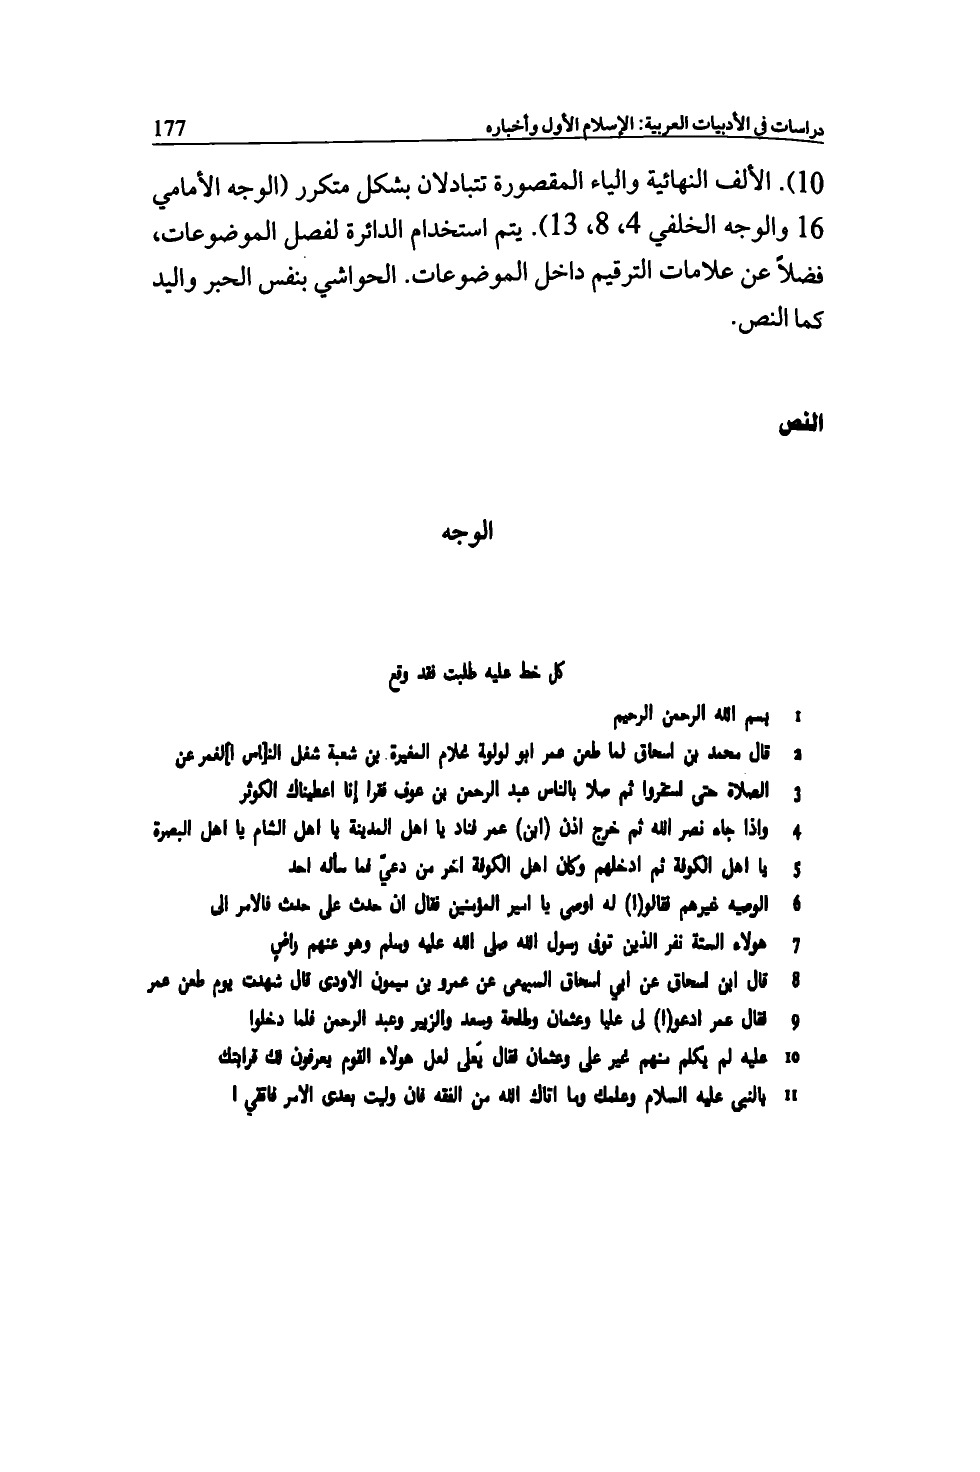 دراسات في الأدبيات العربية: الإسلام الأول وأخباره 177
10). الألف النهائية والياء المقصورة تتبادلان بشكل متكرر (الوجه الأمامي
16 والوجه الخلفي 4، 8، 13). يتم استخدام الدائرة لفصل الموضوعات،
فضلاً عن علامات الترقيم داخل الموضوعات. الحواشي بنفس الحبر واليد
كما النص.
النص
الوجه
كل خط عليه طلبت فقد وقع
1 بسم الله الرحمن الرحيم
2 قال محمد بن اسحاق لما طعن عمر ابو لولوة غلام المغيرة بن شعبة شغل الن[اس ا]لغمر عن
3 الصلاة حتى استقروا ثم صلا بالناس عبد الرحمن بن عوف فقرا إنا اعطيناك الكوثر
4 واذا جاء نصر الله ثم خرج اذن (ابن) عمر فناد يا اهل المدينة يا اهل الشام يا اهل البصرة
5 يا اهل الكوفة ثم ادخلهم وكان اهل الكوفة اخر من دعيّ فما سأله احد
6 الوصيه غيرهم فقالو(ا) له اوصى يا امير المؤمنين فقال ان حدث على حدث فالامر الى
7 هولاء الستة نفر الذين توفى رسول الله صلى الله عليه وسلم وهو عنهم راضٍ
8 قال ابن اسحاق عن ابي اسحاق السبيعى عن عمرو بن ميمون الاودى قال شهدت يوم طعن عمر
9 فقال عمر ادعو(ا) لى عليا وعثمان وطلحة وسعد والزبير وعبد الرحمن فلما دخلوا
10 عليه لم يكلم منهم غير على وعثمان فقال يَعلى لعل هولاء القوم يعرفون لك قرابتك
11 بالنبى عليه السلام وعلمك وما اتاك الله من الفقه فان وليت بعدى الامر فاتقي ا